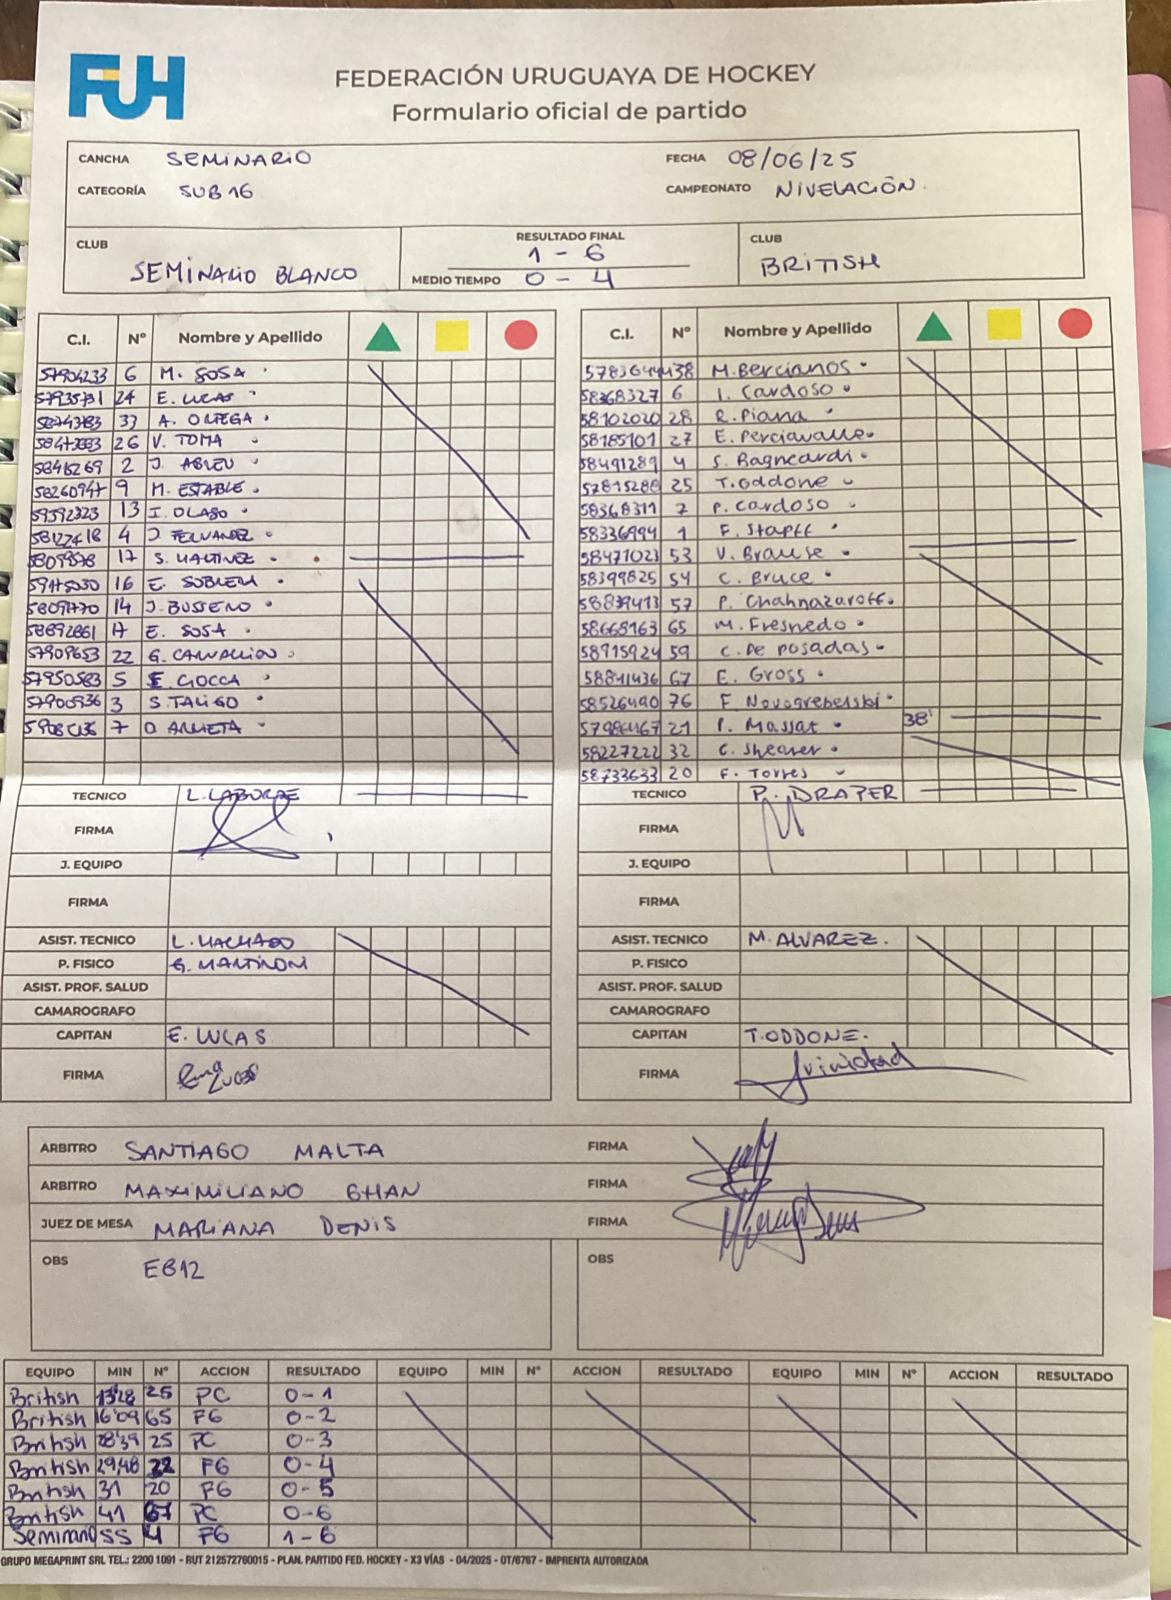 FUH
FEDERACIÓN URUGUAYA DE HOCKEY
Formulario oficial de partido
CANCHA SEMINARIO FECHA 08/06/25
CATEGORÍA SUB16 CAMPEONATO NIVELACIÓN.
CLUB SEMINARIO BLANCO
RESULTADO FINAL 1 - 6
MEDIO TIEMPO 0 - 4
CLUB BRITISH
C.I. Nº Nombre y Apellido
57904233 6 M. SOSA
57935731 24 E. LUCAS
58743783 33 A. ORTEGA
26 V. TOMA
58415269 2 J. ABREU
58260947 9 M. ESTABLE
59592323 13 I. OLASO
58127418 4 J. FERNANDEZ
17 S. MARTINEZ
16 E. SOBLERA
14 J. BUSSENO
58892861 17 E. SOSA
57909653 22 G. CARVALLIDO
57950583 5 E. CIOCCA
57900936 3 S. TALIGO
7 D. ARRIETA
TECNICO L. LABORDE
FIRMA
J. EQUIPO
FIRMA
ASIST. TECNICO L. MACHADO
P. FISICO G. MARTINONI
ASIST. PROF. SALUD
CAMAROGRAFO
CAPITAN E. LUCAS
FIRMA
C.I. Nº Nombre y Apellido
57836444 38 M. Bercianos
58368327 6 I. Cardoso
58102020 28 R. Piana
58185101 27 E. Perciavalle
58491289 4 S. Bagncardi
57815280 25 T. oddone
58368311 7 P. Cardoso
58336994 1 F. Stapff
58471023 53 V. Brause
58399825 54 C. Bruce
58839413 57 P. Chahnazaroff
58668163 65 M. Fresnedo
58915924 59 C. De posadas
58841436 67 E. Gross
58526490 76 F. Novogrebelski
57986467 21 P. Massat 38'
58227222 32 C. Shearer
58733633 20 F. Torres
TECNICO P. DRAPER
FIRMA
J. EQUIPO
FIRMA
ASIST. TECNICO M. ALVAREZ.
P. FISICO
ASIST. PROF. SALUD
CAMAROGRAFO
CAPITAN T. ODDONE.
FIRMA Trinidad
ARBITRO SANTIAGO MALTA FIRMA
ARBITRO MAXIMILIANO GHAN FIRMA
JUEZ DE MESA MARIANA DENIS FIRMA
OBS EB12 OBS
EQUIPO MIN Nº ACCION RESULTADO EQUIPO MIN Nº ACCION RESULTADO EQUIPO MIN Nº ACCION RESULTADO
British 13'28 25 PC 0-1
British 16'09 65 FG 0-2
British 28'39 25 PC 0-3
British 29,48 32 FG 0-4
British 31 20 FG 0-5
British 41 67 PC 0-6
Seminario 55 4 FG 1-6
GRUPO MEGAPRINT SRL TEL.: 2200 1091 - RUT 212572760015 - PLAN. PARTIDO FED. HOCKEY - X3 VÍAS - 04/2025 - OT/6767 - IMPRENTA AUTORIZADA